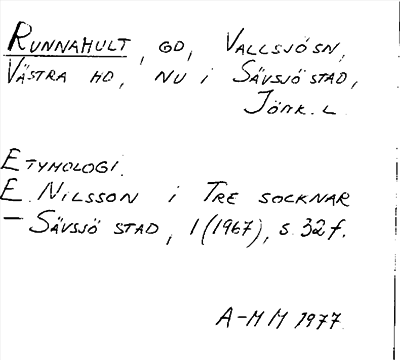 RUNNAHULT, GD, VALLSJÖSN,
VÄSTRA HD, NU I SÄVSJÖ STAD,
JÖNK. L.
ETYMOLOGI.
E. NILSSON I TRE SOCKNAR
– SÄVSJÖ STAD, 1 (1967), S. 32 f.
A-M M 1977